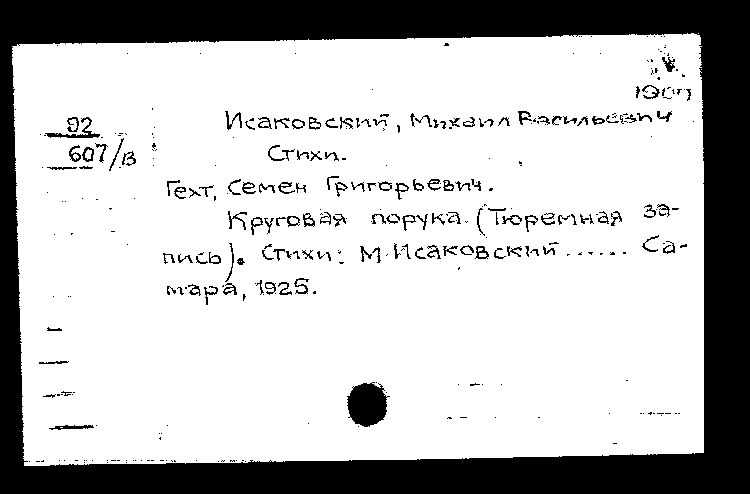 1900
92
607/В
Исаковский, Михаил Васильевич
Стихи.
Гехт, Семен Григорьевич.
Круговая порука. (Тюремная за-
пись). Стихи: М. Исаковский...... Са-
мара, 1925.